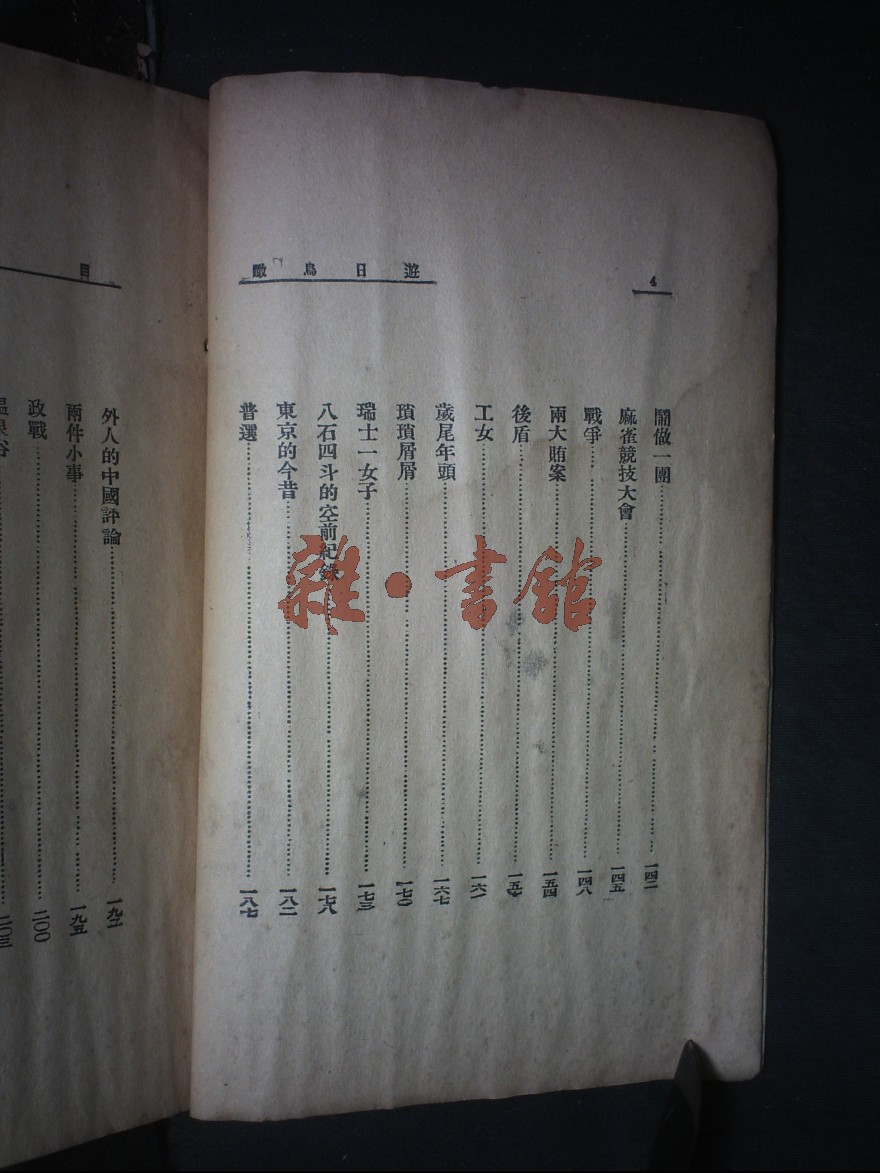 4
遊日鳥瞰
鬧做一團……一四二
麻雀競技大會……一四五
戰爭……一四八
兩大賄案……一五四
後盾……
工女……
歲尾年頭……一六七
瑣瑣屑屑……一七〇
瑞士一女子……一七三
八石四斗的空前紀錄……一七八
東京的今昔……一八二
普選……一八七
目
外人的中國評論……
兩件小事……一九五
政戰……二〇〇
二〇三
雜·書館